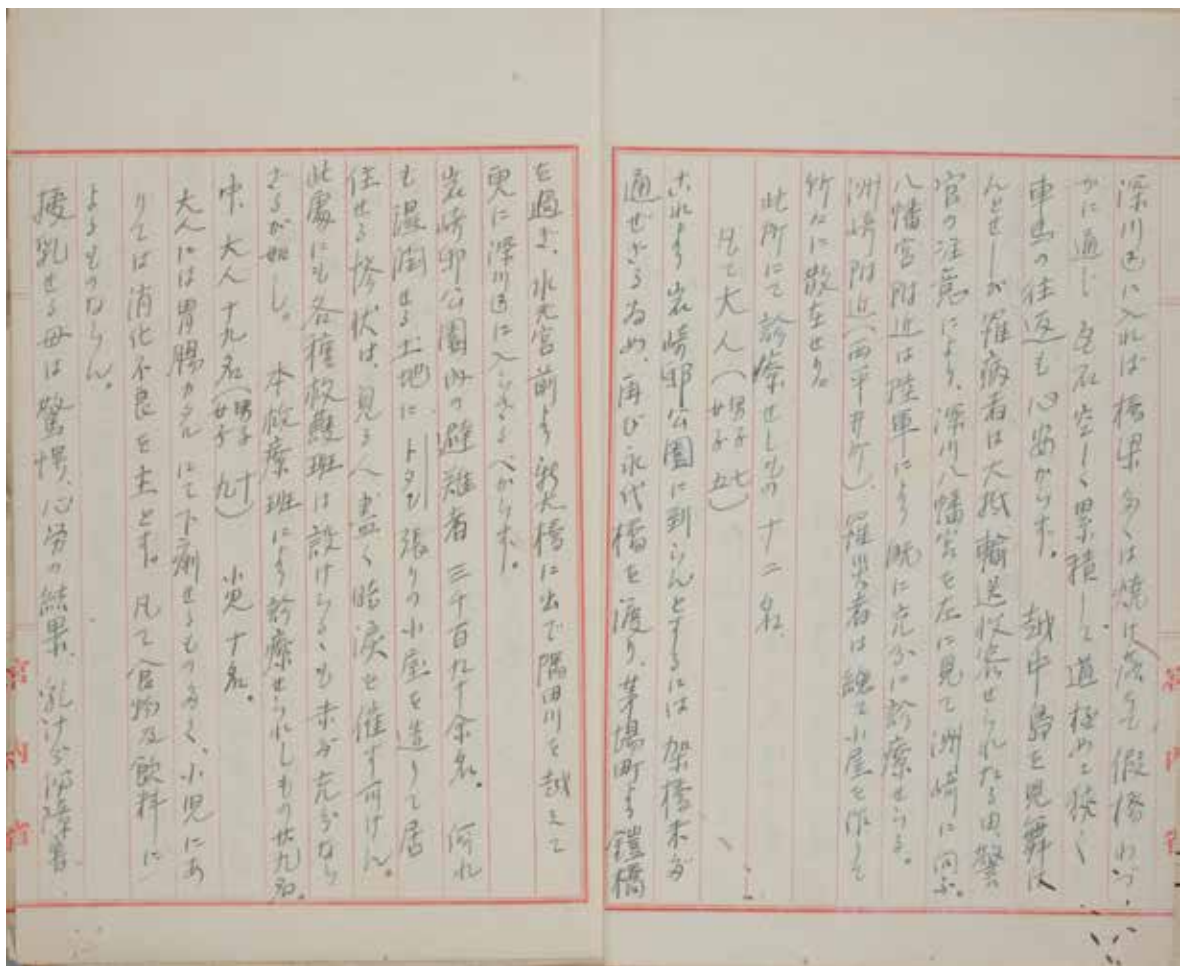 深川區に入れば橋梁多くは焼け落ちて假橋わづ
かに通じ瓦石空しく累積して道極めて狭く
車馬の往返も心安からず。越中島を見舞は
んとせしが羅病者は大抵輸送收容せられたる由、警
官の注意により、深川八幡宮を左に見て洲崎に向ふ。
八幡宮附近は陸軍により既に充分に診療せらる。
洲崎附近(西平井町)、羅災者は銕て小屋を作りて
所々に散在せり。
此所にて診療せしもの十二名
凡て大人(男子七 女子五)
これより岩崎邸公園に到らんとするには架橋未だ
通ぜざるため、再び永代橋を渡り、茅場町より鎧橋
を過ぎ、水天宮前より新大橋に出で隅田川を越えて
更に深川區に入らざるべからず。
岩崎邸公園内の避難者三千百九十余名。何れ
も湿潤せる土地にトタン張りの小屋を造りて居
住せる惨状は、見る人盡く暗涙を催す可けん。
此處にも各種救護班は設けらるゝも未だ充分なら
ざるが如し。本救療班により診療せられしもの廿九名。
中、大人十九名(男子十 女子九) 小児十名。
大人には胃腸カタルにて下痢せるもの多く、小児にあ
りては消化不良を主とす。凡て食物及飲料に
よるものならん。
授乳せる母は驚愕、心労の結果、乳汁分泌障害、
宮内省
宮内省